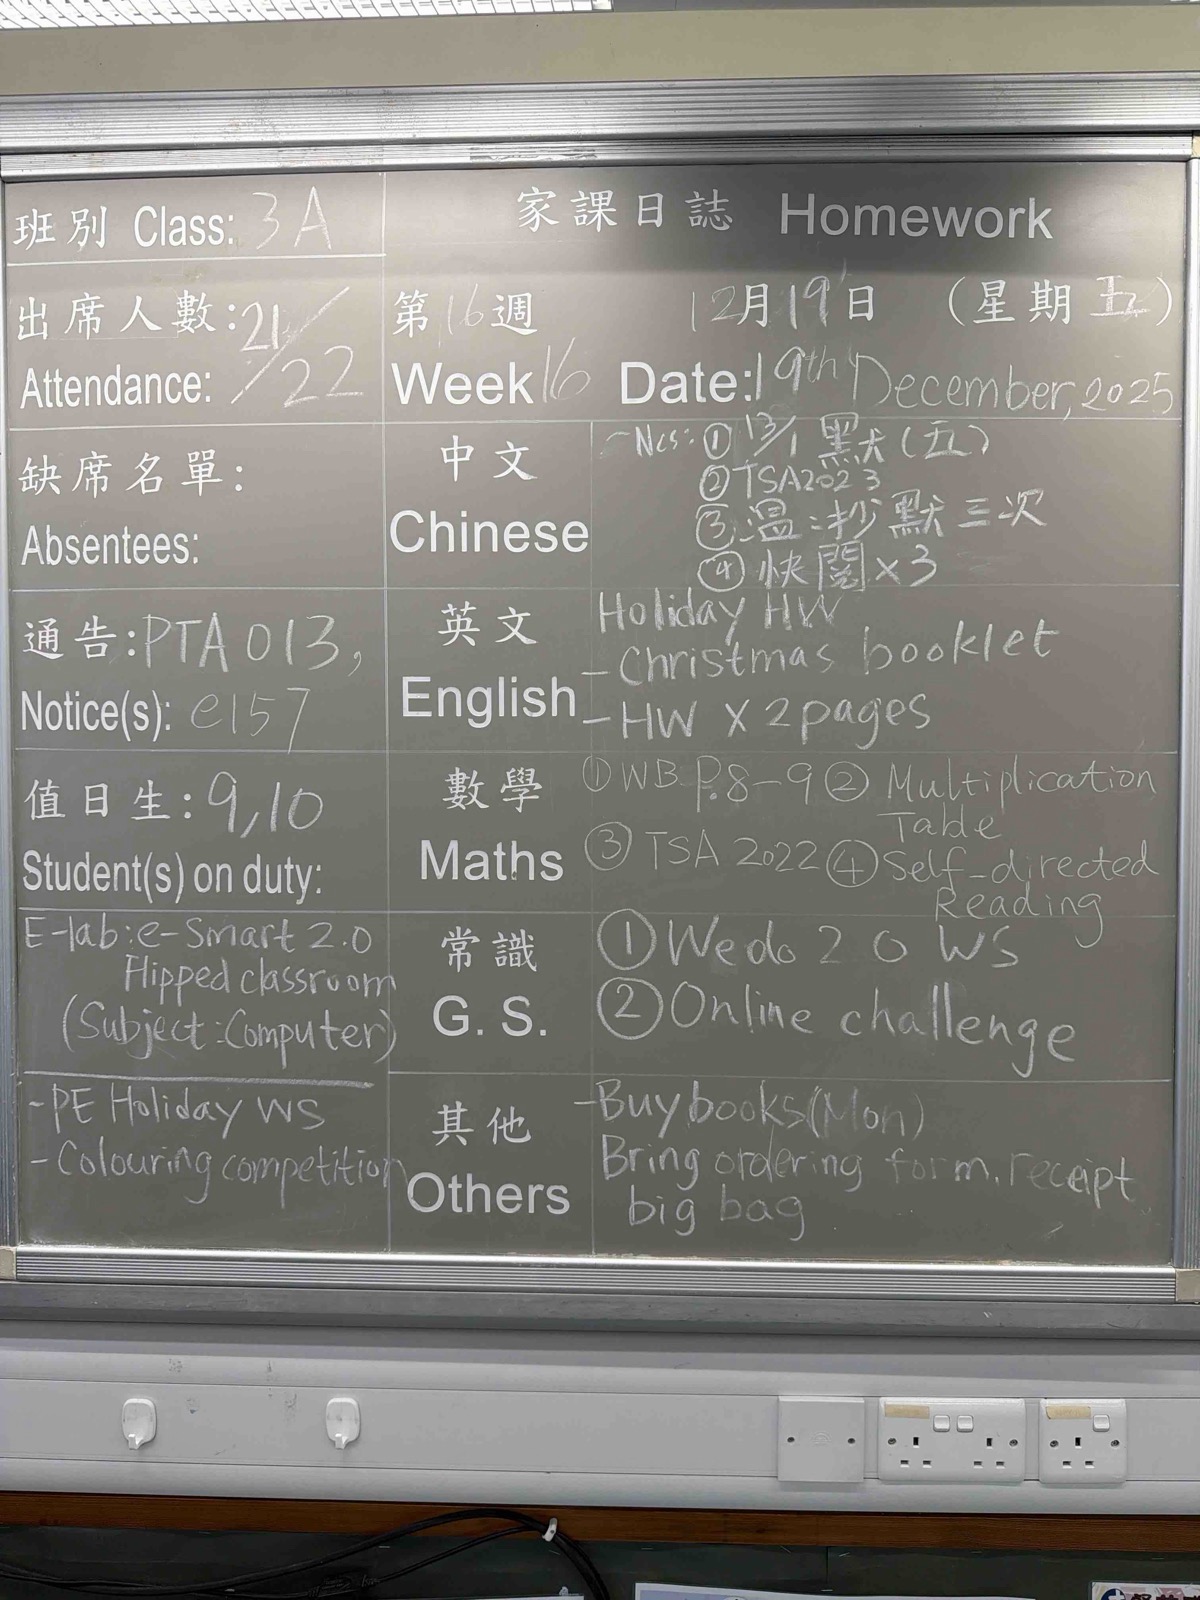 班別 Class: 3A
家課日誌 Homework
出席人數: 21/
Attendance: /22
第16週 12月19日 (星期五)
Week 16 Date: 19th December, 2025
缺席名單:
Absentees:
中文
Chinese
Ncs: ① 13/1 默(五)
② TSA2023
③ 溫:抄默三次
④ 快閱x3
通告: PTA 013,
Notice(s): e157
英文
English
Holiday HW
- Christmas booklet
- HW X 2pages
值日生: 9,10
Student(s) on duty:
數學
Maths
① WB P.8-9 ② Multiplication
Table
③ TSA 2022 ④ Self-directed
Reading
E-lab: e-Smart 2.0
Flipped classroom
(Subject: Computer)
常識
G. S.
① Wedo 2 0 WS
② Online challenge
- PE Holiday WS
- Colouring competition
其他
Others
- Buy books (Mon)
Bring ordering form, receipt
big bag